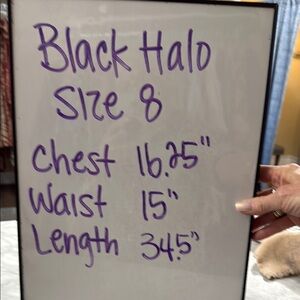 Black Halo
Size 8
Chest 16.25"
Waist 15"
Length 34.5"